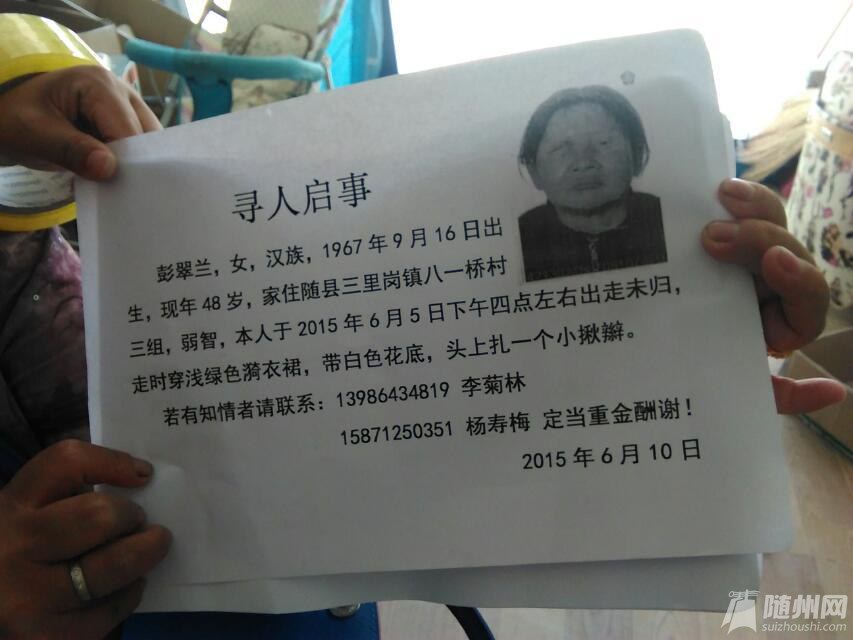 寻人启事
彭翠兰，女，汉族，1967年9月16日出
生，现年48岁，家住随县三里岗镇八一桥村
三组，弱智，本人于2015年6月5日下午四点左右出走未归，
走时穿浅绿色漪衣裙，带白色花底，头上扎一个小揪辮。
若有知情者请联系：13986434819 李菊林
15871250351 杨寿梅 定当重金酬谢！
2015年6月10日
随州网
suizhoushi.com